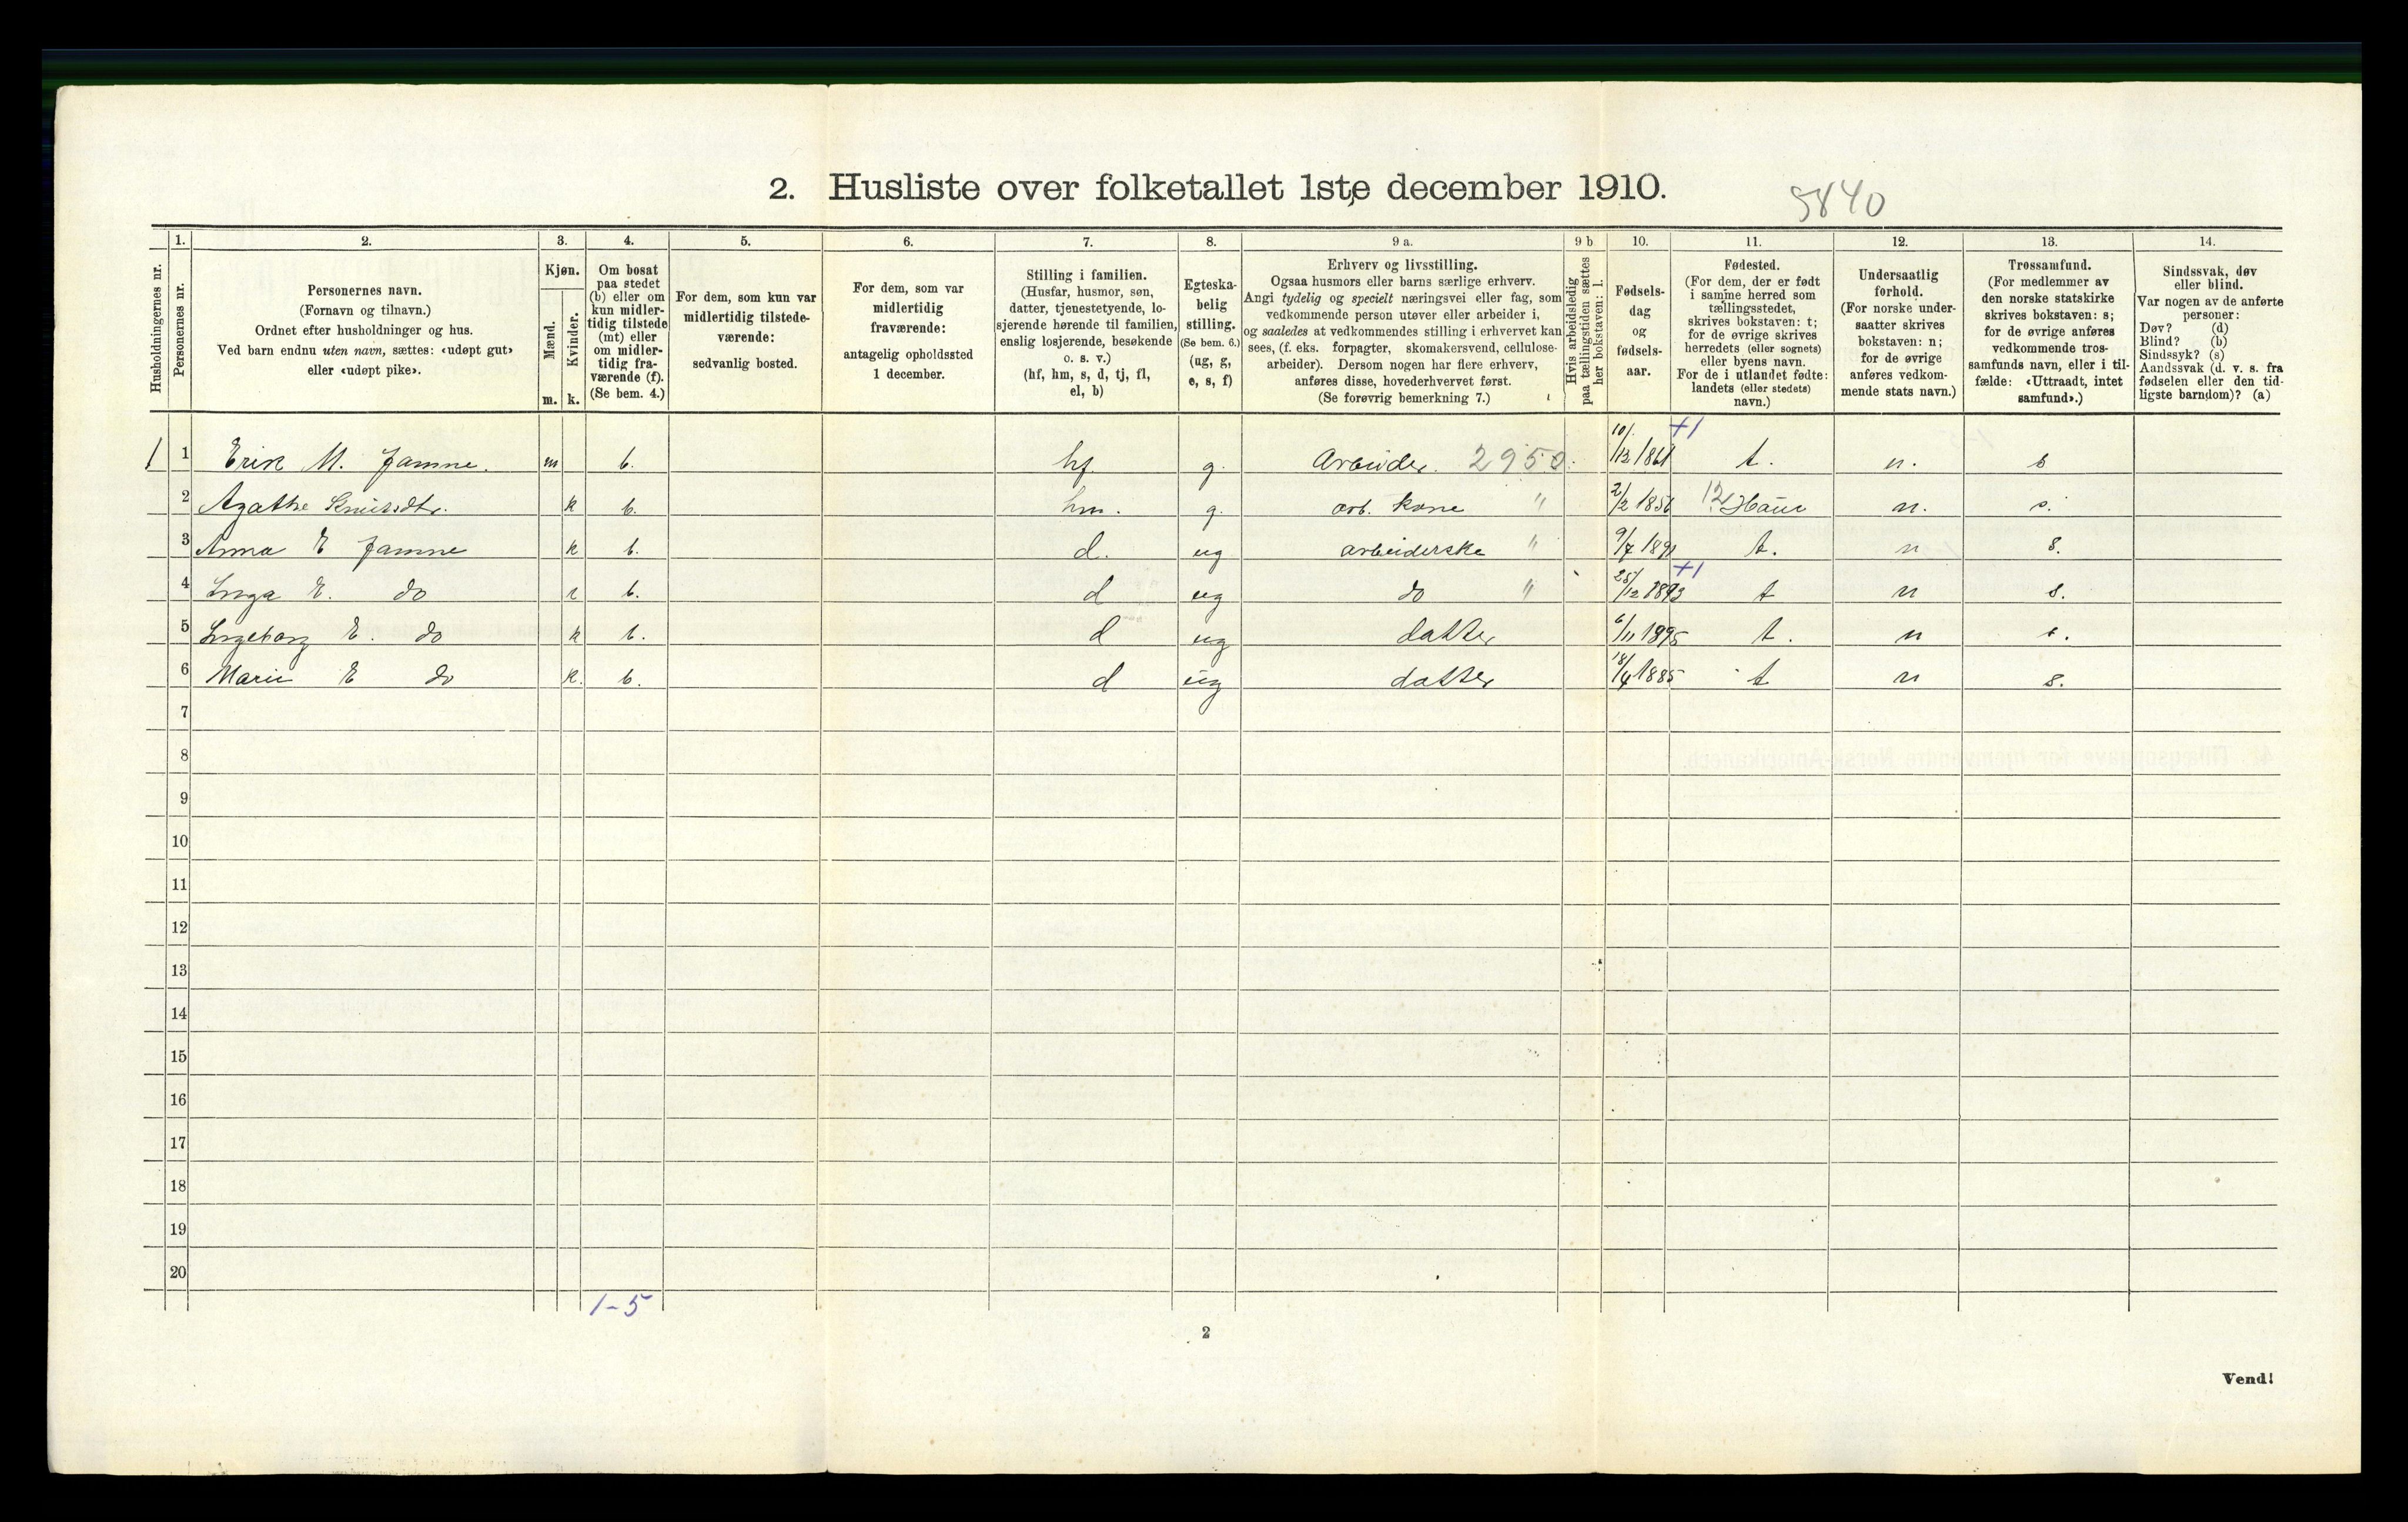 2. Husliste over folketallet 1ste december 1910.
5840
Husholdningernes nr.
1.
Personernes nr.
2.
Personernes navn.
(Fornavn og tilnavn.)
Ordnet efter husholdninger og hus.
Ved barn endnu uten navn, sættes: «udøpt gut»
eller «udøpt pike».
3.
Kjøn.
Mænd.
Kvinder.
m. k.
4.
Om bosat
paa stedet
(b) eller om
kun midler-
tidig tilstede
(mt) eller
om midler-
tidig fra-
værende (f).
(Se bem. 4.)
5.
For dem, som kun var
midlertidig tilstede-
værende:
sedvanlig bosted.
6.
For dem, som var
midlertidig
fraværende:
antagelig opholdssted
1 december.
7.
Stilling i familien.
(Husfar, husmor, søn,
datter, tjenestetyende, lo-
sjerende hørende til familien,
enslig losjerende, besøkende
o. s. v.)
(hf, hm, s, d, tj, fl,
el, b)
8.
Egteska-
belig
stilling.
(Se bem. 6.)
(ug, g,
e, s, f)
9 a.
Erhverv og livsstilling.
Ogsaa husmors eller barns særlige erhverv.
Angi tydelig og specielt næringsvei eller fag, som
vedkommende person utøver eller arbeider i,
og saaledes at vedkommendes stilling i erhvervet kan
sees, (f. eks. forpagter, skomakersvend, cellulose-
arbeider). Dersom nogen har flere erhverv,
anføres disse, hovederhvervet først.
(Se forøvrig bemerkning 7.)
9 b
Hvis arbeidsledig
paa tællingstiden sættes
her bokstaven: l.
10.
Fødsels-
dag
og
fødsels-
aar.
11.
Fødested.
(For dem, der er født
i samme herred som
tællingsstedet,
skrives bokstaven: t;
for de øvrige skrives
herredets (eller sognets)
eller byens navn.
For de i utlandet fødte:
landets (eller stedets)
navn.)
12.
Undersaatlig
forhold.
(For norske under-
saatter skrives
bokstaven: n;
for de øvrige
anføres vedkom-
mende stats navn.)
13.
Trossamfund.
(For medlemmer av
den norske statskirke
skrives bokstaven: s;
for de øvrige anføres
vedkommende tros-
samfunds navn, eller i til-
fælde: «Uttraadt, intet
samfund».)
14.
Sindssvak, døv
eller blind.
Var nogen av de anførte
personer:
Døv? (d)
Blind? (b)
Sindssyk? (s)
Aandssvak (d. v. s. fra
fødselen eller den tid-
ligste barndom)? (a)
1 1 Erik M. Jamne. m b. hf. g. Arbeider. 2950. 10/12 1861 +1 t. n. s
2 Agathe Knudsdtr. k b. hm. g. arb. kone " 2/2 1856 12 Haus n. s.
3 Anna E Jamne k b. d. ug arbeiderske " 9/7 1891 t. n s.
4 Inga E. do k b. d ug do " 25/12 1893 +1 t n s.
5 Ingeborg E. do k b. d ug datter 6/11 1895 t. n s.
6 Marie E do k. b. d ug datter 18/4 1885 t n s.
7
8
9
10
11
12
13
14
15
16
17
18
19
20
1-5
2
Vend!